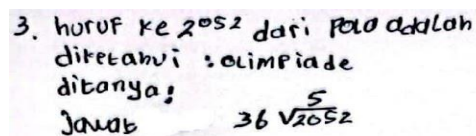 3. huruf ke 2052 dari Pola adalah
diketahui : OLimPiade
ditanya :
Jawab 36 √2052 5